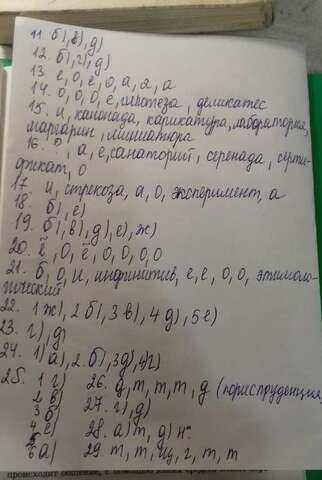 11. б), в), д)
12. б), г), д)
13 е, о, е, о, а, а, а
14. о, о, о, е, гипотеза, деликатес
15. и, канонада, карикатура, лаборатория,
маргарин, миниатюра
16. а, е, санаторий, серенада, серти-
фикат, о
17. и, стрекоза, а, о, эксперимент, а
18. б), е)
19. б), в), д), е), ж)
20. ё, о, ё, о, о, о, о
21. б, о, и, инфинитив, е, е, о, о, этимоло-
гический
22. 1 ж), 2 б), 3 в), 4 д), 5 е)
23. г), д)
24. 1) а), 2. б), 3 д), 4 г)
25. 1 г) 26. д, т, т, т, д (юриспруденция,
2 в) 27. г), д)
3 б)
4 е) 28. а) т, д) н.
5
6 а) 29 т, т, щ, г, т, т
происходит общение, с помощью каких средств